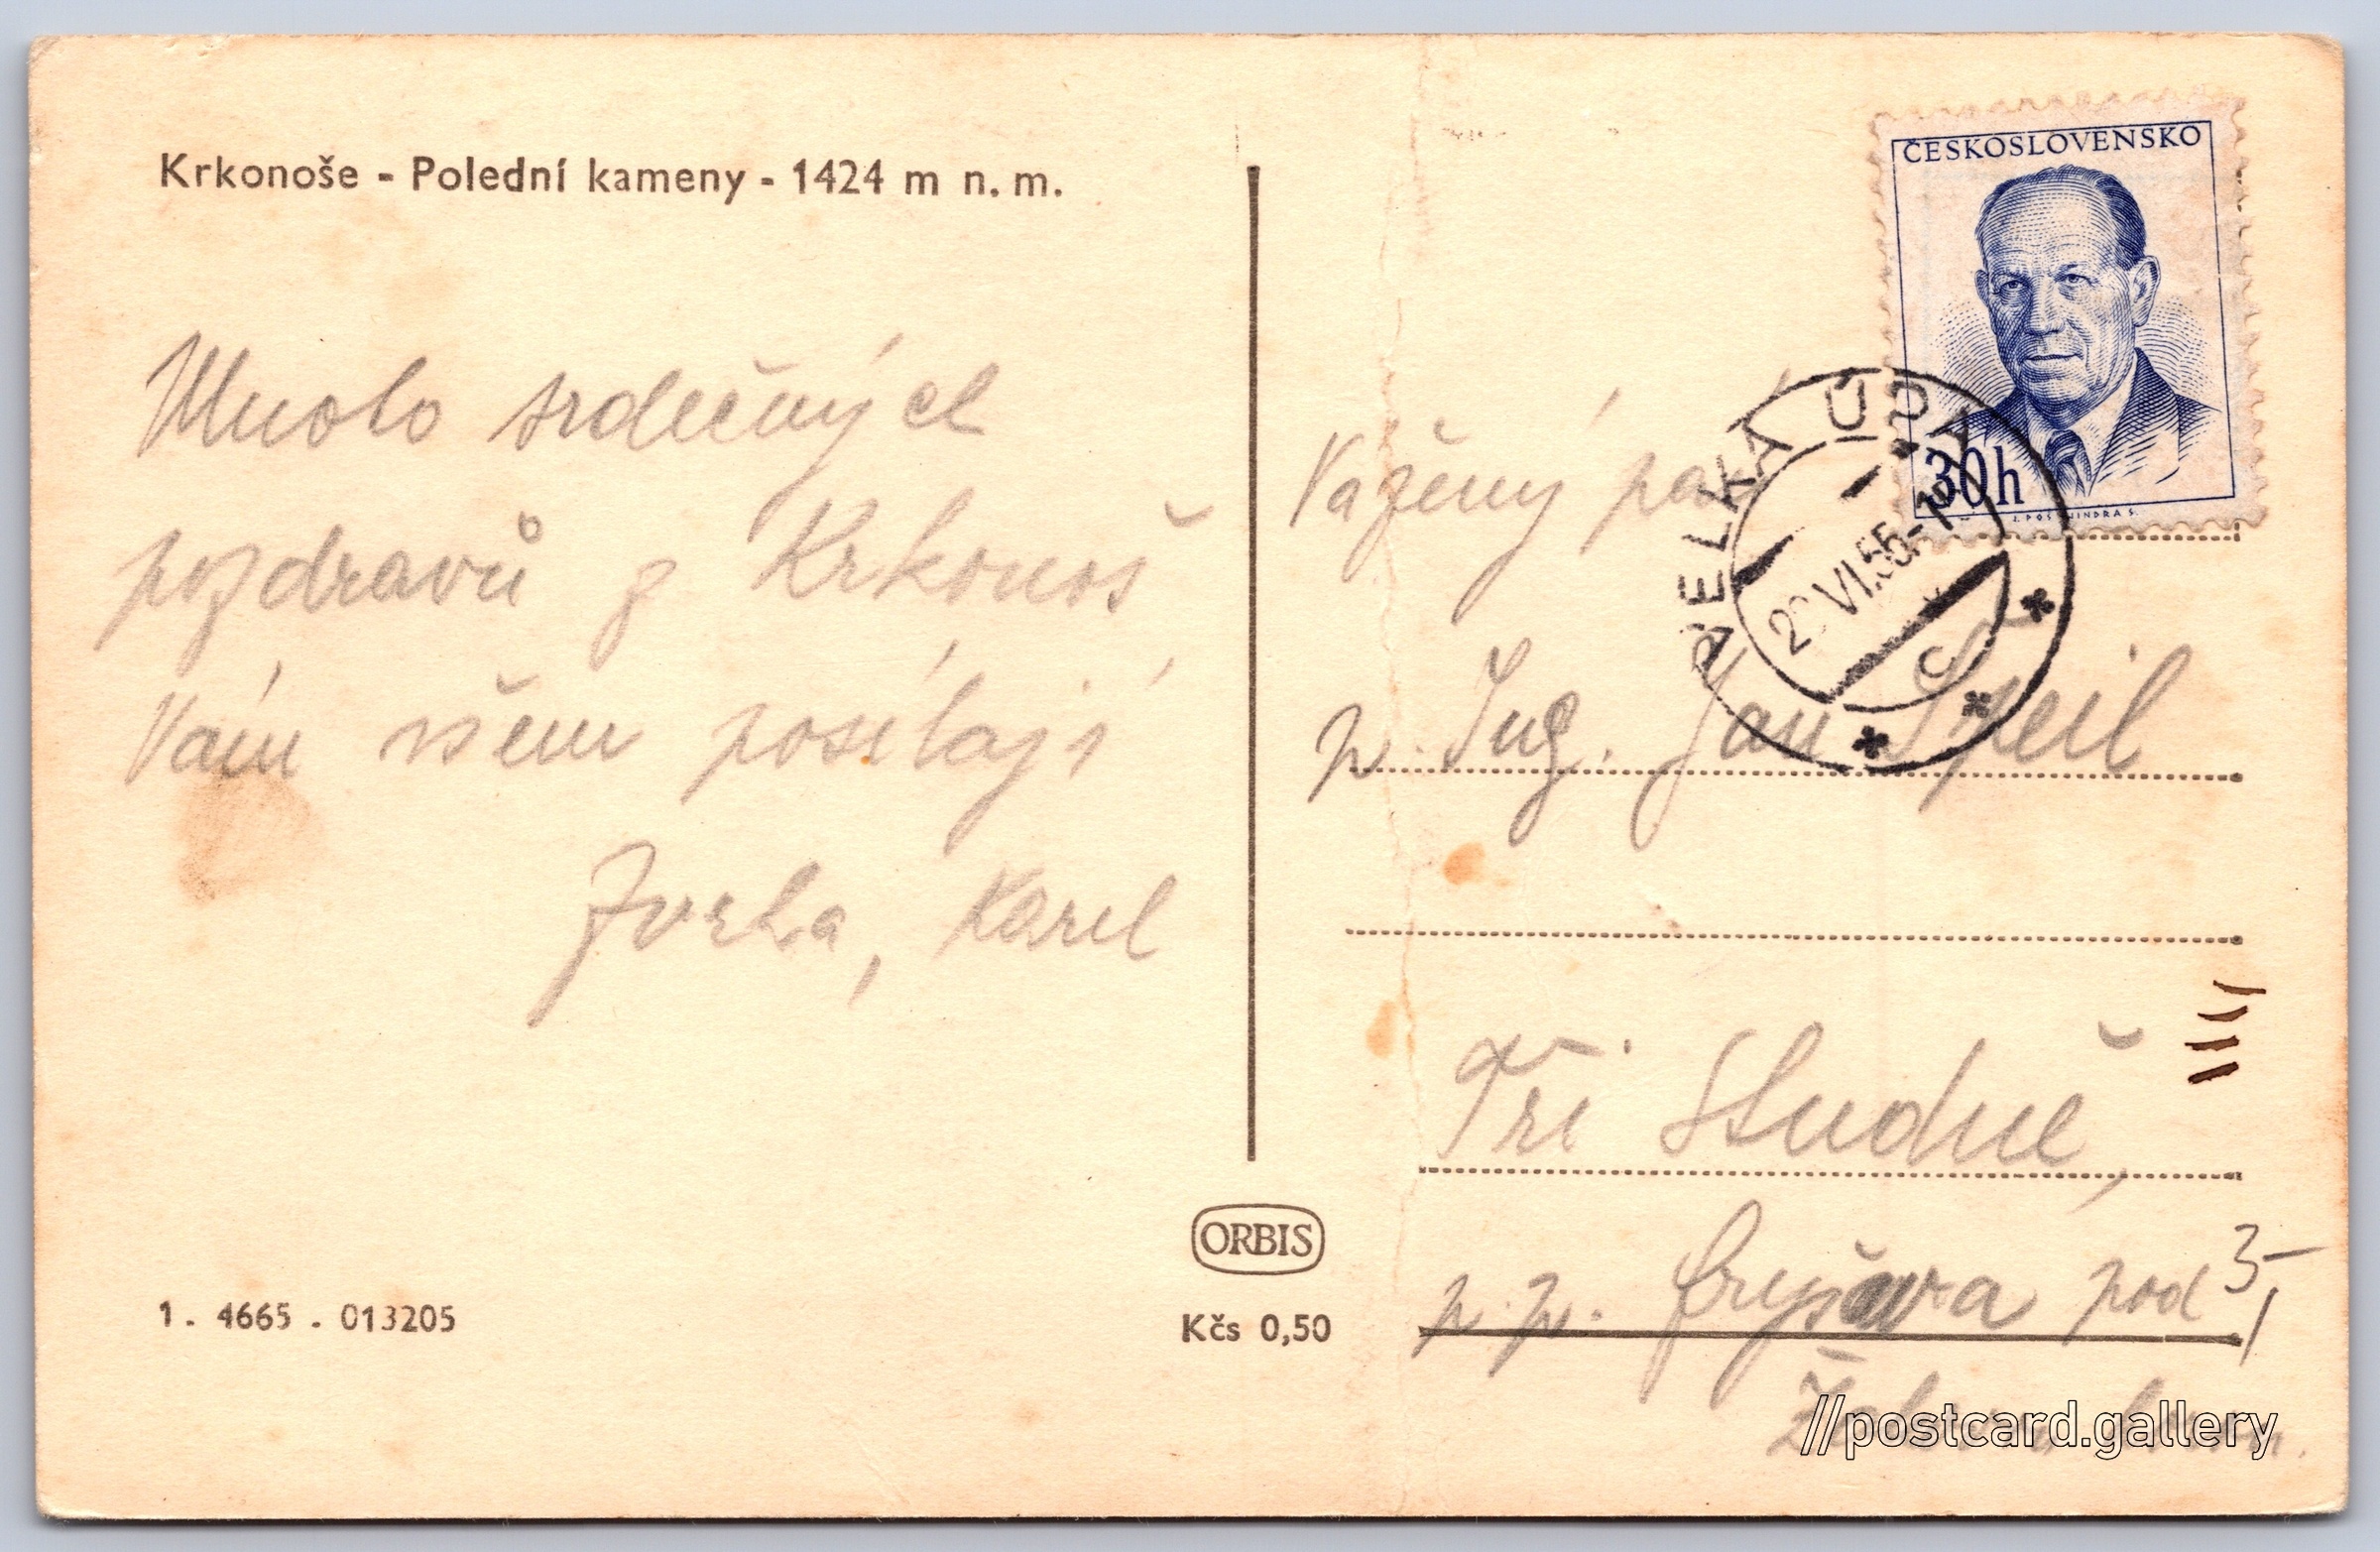 Krkonoše - Polední kameny - 1424 m n. m.
Mnoho srdečných
pozdravů z Krkonoš
Vám všem posílají
Jvrha, Karel
1. 4665 . 013205
ORBIS
Kčs 0,50
ČESKOSLOVENSKO
30h
VELKÁ ÚPA
VI.55
Vážený pán
p. Ing. Jan Speil
Tři Studně,
p. p. Fryšava pod
3,-
//postcard.gallery